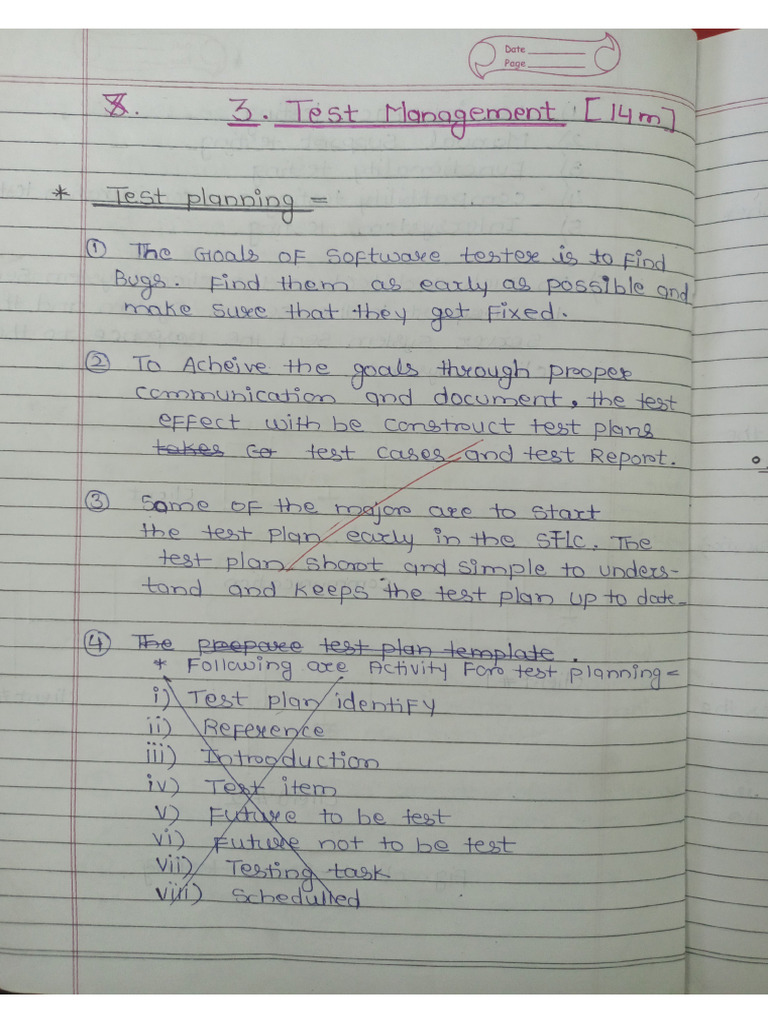 Date
Page
3. Test Management [14m]
* Test planning =
① The Goals of software tester is to find
Bugs. Find them as early as possible and
make sure that they get Fixed.
② To Acheive the goals through proper
communication and document, the test
effect with be construct test plans
takes Co test cases and test Report.
③ Some of the major are to start
the test plan early in the STLC. The
test plan short and simple to unders-
tand and keeps the test plan up to date.
④ The prepare test plan template.
* Following are Activity For test planning =
i) Test plan identify
ii) Reference
iii) Introduction
iv) Test item
v) Future to be test
vi) Future not to be test
vii) Testing task
viii) Schedulled